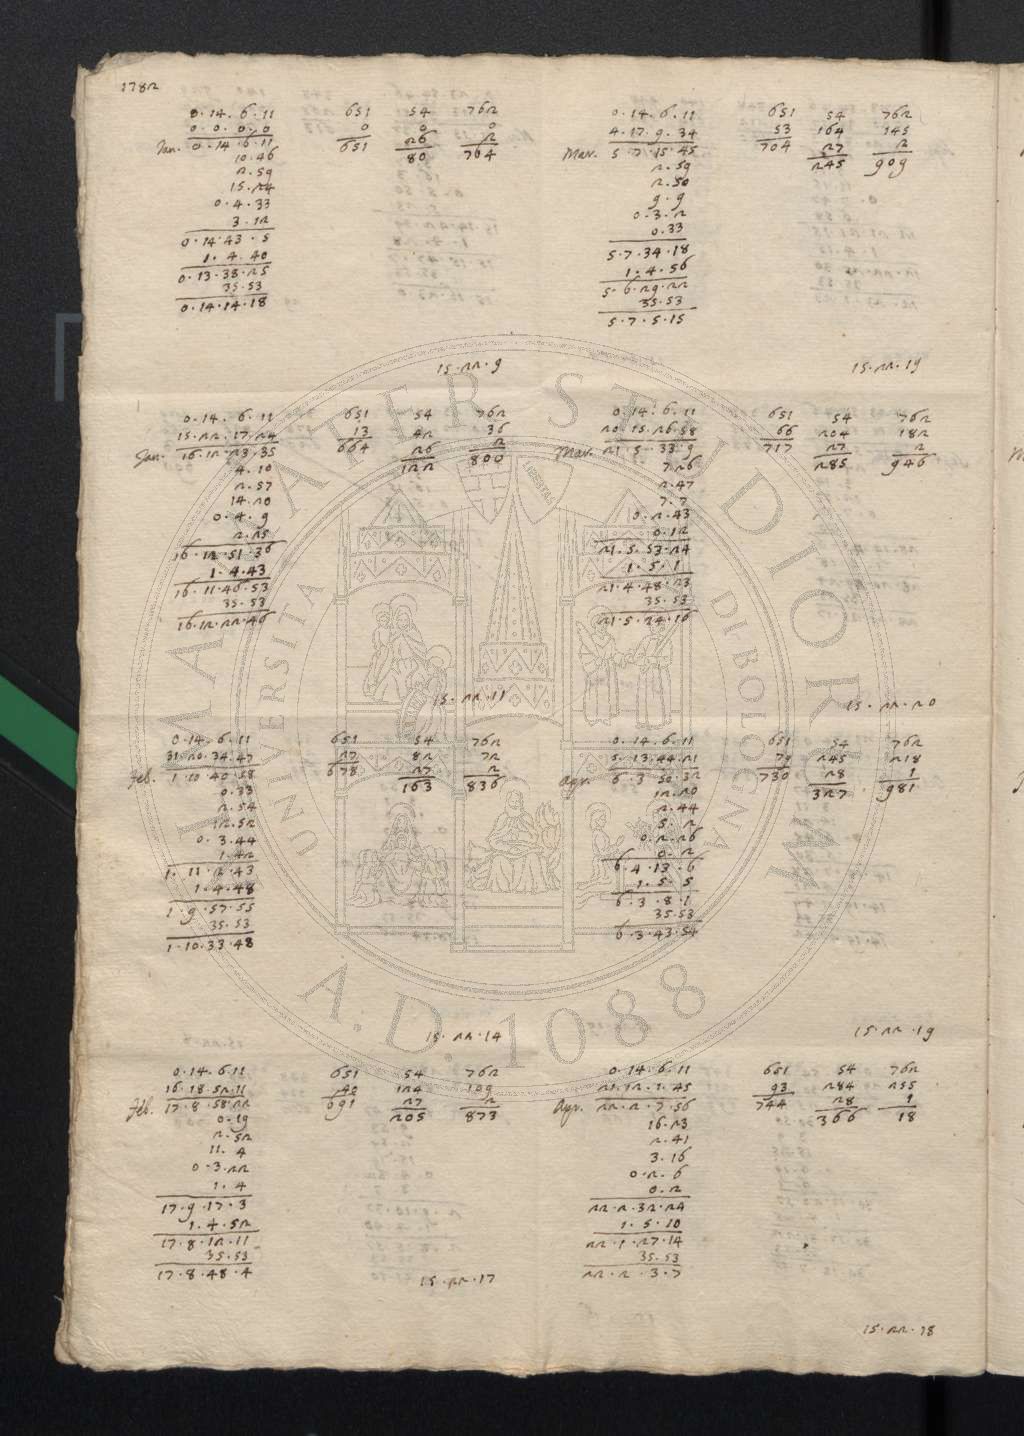 1782
0.14.6.11 651 54 762
0.0.0.0 0 0 0
Jan. 0.14.6.11 651 26 2
10.46 80 764
2.59
15.24
0.4.33
3.12
0.14.43.5
1.4.40
0.13.38.25
35.53
0.14.14.18
15.22.9
0.14.6.11 651 54 762
15.22.17.24 13 42 36
Jan. 16.12.23.35 664 26 2
4.10 122 800
2.57
14.20
0.4.9
2.25
16.12.51.36
1.4.43
16.11.46.53
35.53
16.12.22.46
15.22.11
0.14.6.11 651 54 762
31.20.34.47 27 82 72
Feb. 1.10.40.58 678 27 2
0.33 163 836
2.54
12.52
0.3.44
1.42
1.11.2.43
1.4.48
1.9.57.55
35.53
1.10.33.48
15.22.14
0.14.6.11 651 54 762
16.18.52.11 40 124 109
Feb. 17.8.58.22 691 27 2
0.19 205 873
2.52
11.4
0.3.22
1.4
17.9.17.3
1.4.52
17.8.12.11
35.53
17.8.48.4
15.22.17
0.14.6.11 651 54 762
4.17.9.34 53 164 145
Mar. 5.7.15.45 704 27 2
2.59 245 909
2.50
9.9
0.3.2
0.33
5.7.34.18
1.4.56
5.6.29.22
35.53
5.7.5.15
15.22.19
0.14.6.11 651 54 762
20.15.26.58 66 204 182
Mar. 21.5.33.9 717 27 2
7.26 285 946
2.47
7.7
0.2.43
0.12
21.5.53.24
1.5.1
21.4.48.23
35.53
21.5.24.16
15.22.20
0.14.6.11 651 54 762
5.13.44.21 79 245 218
Apr. 6.3.50.32 730 28 1
12.20 327 981
2.44
5.2
0.2.26
0.2
6.4.13.6
1.5.5
6.3.8.1
35.53
6.3.43.54
15.22.19
0.14.6.11 651 54 762
21.12.1.45 93 284 255
Apr. 22.2.7.56 744 28 1
16.23 366 18
2.41
3.16
0.2.6
0.2
22.2.32.24
1.5.10
22.1.27.14
35.53
22.2.3.7
15.22.18
ALMA MATER STUDIORUM
UNIVERSITÀ DI BOLOGNA
LIBERTAS
A.D. 1088